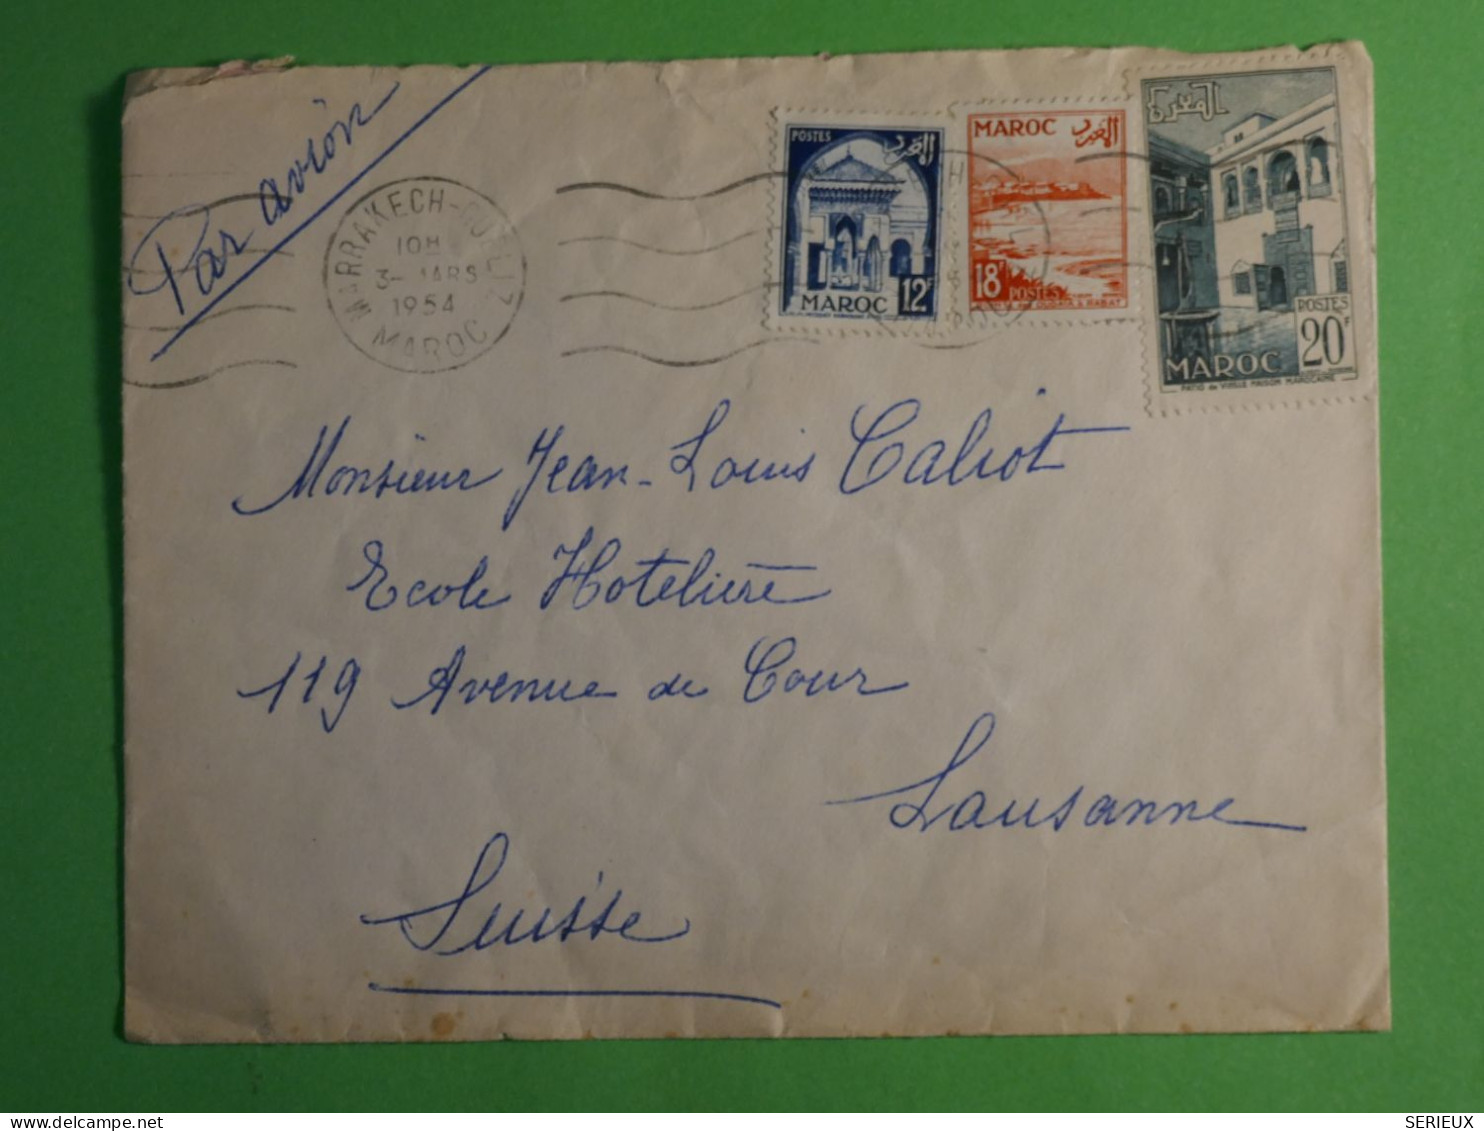 Par avion
MARRAKECH-GUELIZ
10H
3- MARS
1954
MAROC
POSTES
المغرب
MAROC 12F
MAROC المغرب
18F POSTES
A RABAT
المغرب
POSTES
MAROC 20F
PATIO de VIEILLE MAISON MAROCAINE
Monsieur Jean-Louis Caliot
Ecole Hotelière
119 Avenue de Cour
Lausanne
Suisse
delcampe.net
SERIEUX